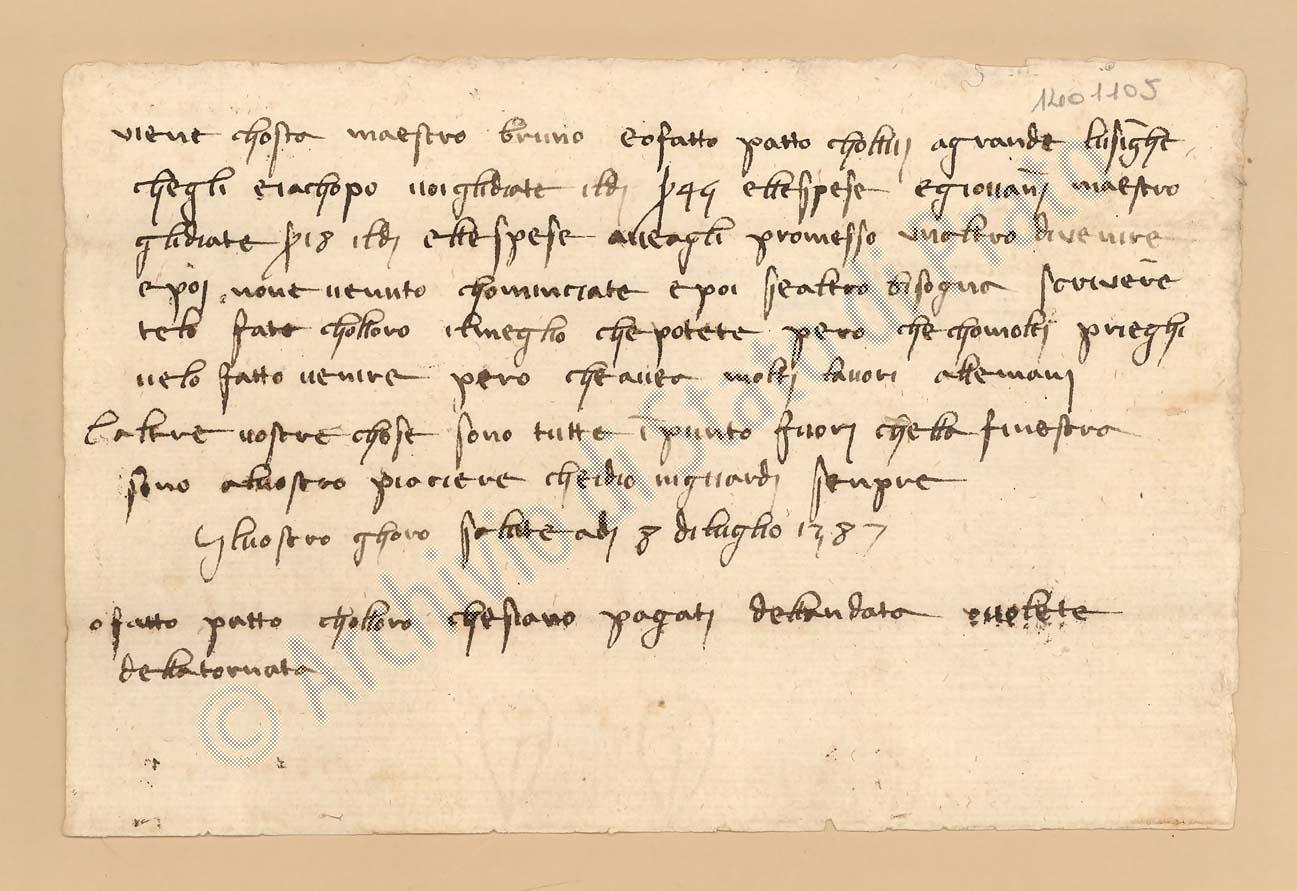 1401105
viene chosta maestro bruno eofatto patto chollui agrande lusinghe
chegli eiachopo voigli diate il di s 45 ellespese egiovanni maestro
gli diate s 18 il di ellespese aveagli promesso unaltro di venire
epoi none venuto chominciate epoi sealtro bisogna scrivere
telo fate cholloro ilmeglio che potete pero che chomolti prieghi
velo fatto venire pero che avea molti lavori allemani
laltre vostre chose sono tutte in punto fuori chella finestra
sono alvostro piaciere cheidio vi guardi senpre
Il vostro ghoro salute adi 8 di luglio 1387
o fatto patto cholloro chesiano pagati dellandata evolete
dellatornata
© Archivio di Stato di Prato